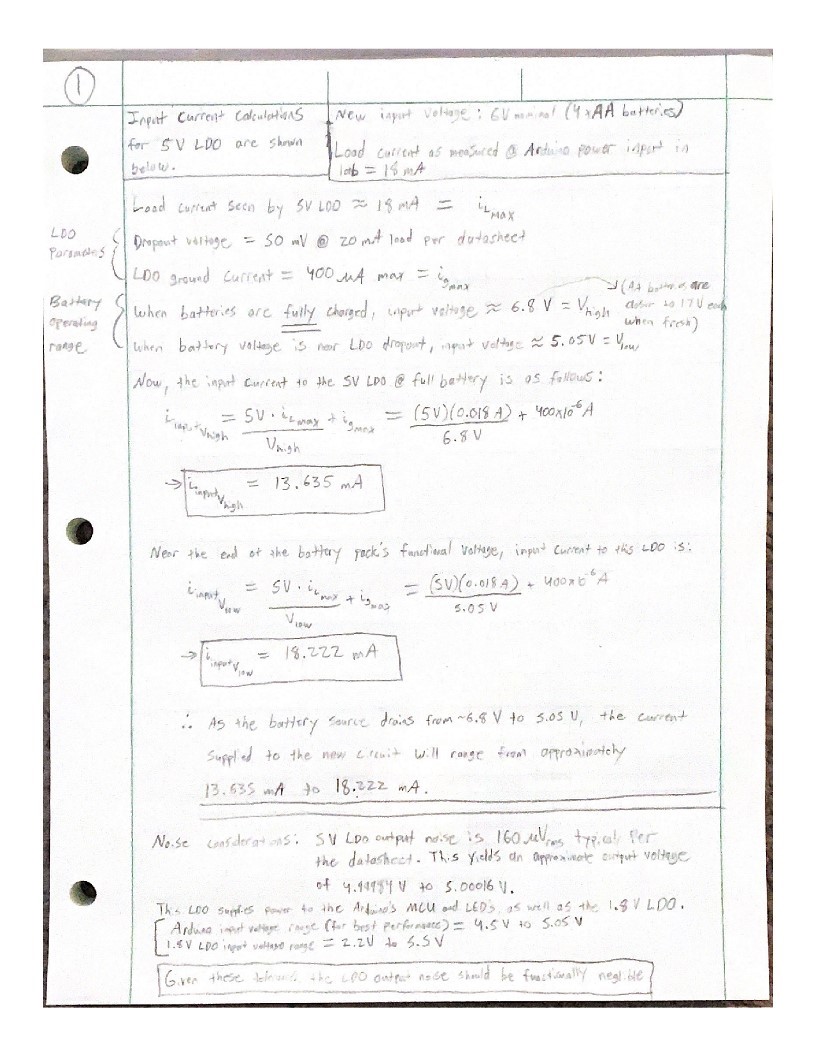 1
Input Current Calculations
for 5V LDO are shown
below.
New input voltage: 6V nominal (4xAA batteries)
Load current as measured @ Arduino power input in
lab = 18 mA
Load current seen by 5V LDO ≈ 18 mA = i_Lmax
LDO
Parameters
Dropout voltage = 50 mV @ 20 mA load per datasheet
LDO ground current = 400 µA max = i_gmax
Battery
operating
range
When batteries are fully charged, input voltage ≈ 6.8 V = V_high
(AA batteries are
closer to 1.7V each
when fresh)
When battery voltage is near LDO dropout, input voltage ≈ 5.05V = V_low
Now, the input current to the 5V LDO @ full battery is as follows:
i_inputVhigh = 5V · i_Lmax / V_high + i_gmax = (5V)(0.018 A) / 6.8 V + 400x10^-6 A
→ i_inputVhigh = 13.635 mA
Near the end of the battery pack's functional voltage, input current to this LDO is:
i_inputVlow = 5V · i_Lmax / V_low + i_gmax = (5V)(0.018 A) / 5.05 V + 400x10^-6 A
→ i_inputVlow = 18.222 mA
∴ As the battery source drains from ~6.8 V to 5.05 V, the current
supplied to the new circuit will range from approximately
13.635 mA to 18.222 mA.
Noise considerations: 5V LDO output noise is 160 µVrms typical per
the datasheet. This yields an approximate output voltage
of 4.99984 V to 5.00016 V.
This LDO supplies power to the Arduino's MCU and LED's, as well as the 1.8V LDO.
Arduino input voltage range (for best performance) = 4.5V to 5.05V
1.8V LDO input voltage range = 2.2V to 5.5V
Given these the LDO output noise should be functionally negligible